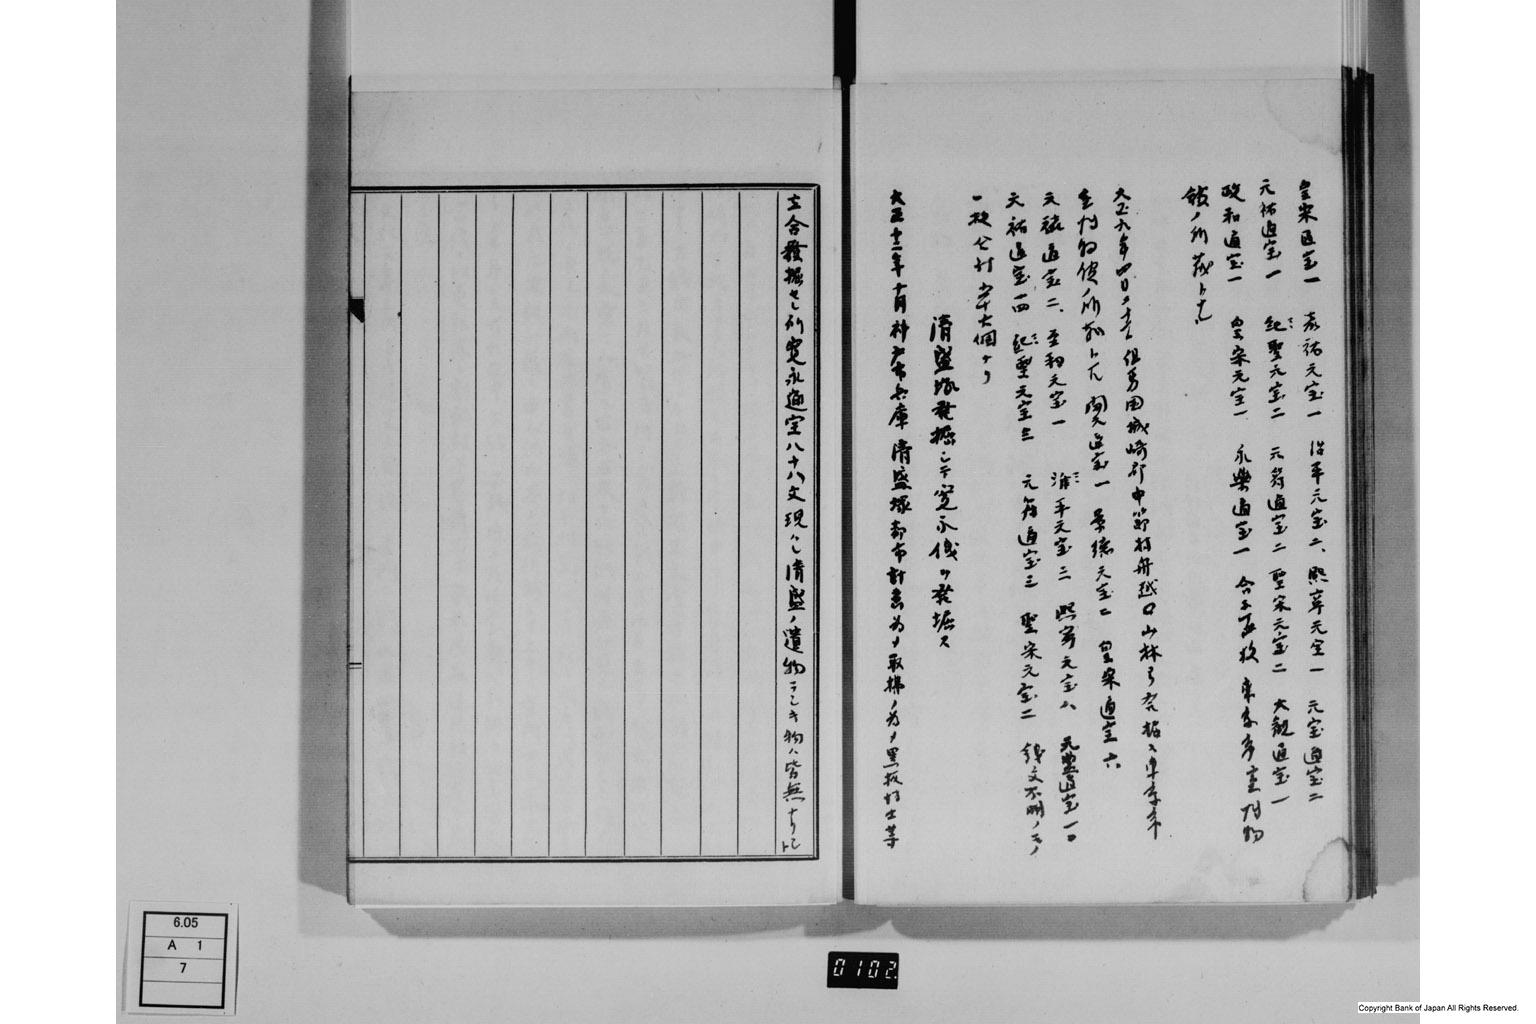 皇宋通宝一 嘉祐元宝一 治平元宝二、熙寧元宝一 元宝通宝二
元祐通宝一 紀聖元宝二 元符通宝二 聖宋元宝二 大観通宝一
政和通宝一 皇宋元宝一 永樂通宝一 合子五枚 東京帝室博物
館ノ所蔵トナル
大正九年四月 但馬国城崎郡中筋村舟越口山林ヨリ発掘
開元通宝一 景徳元宝二 皇宋通宝六
天禧通宝二、至和元宝一 治平元宝二 熙寧元宝八 元豊通宝一〇
元祐通宝一四 紀聖元宝三 元符通宝三 聖宋元宝二 銭文不明ノモノ
一枚 六個ナリ
清盛塚発掘シテ寛永銭ヲ発掘ス
大正十二年十月神戸市兵庫清盛塚都市計畫ノ為メ取拂ノ為メ黒板博士等
立合發掘セシ所寛永通宝八十八文現ハレ清盛ノ遺物ラシキ物ハ皆無ナリシト
6.05
A 1
7
0102
Copyright Bank of Japan All Rights Reserved.